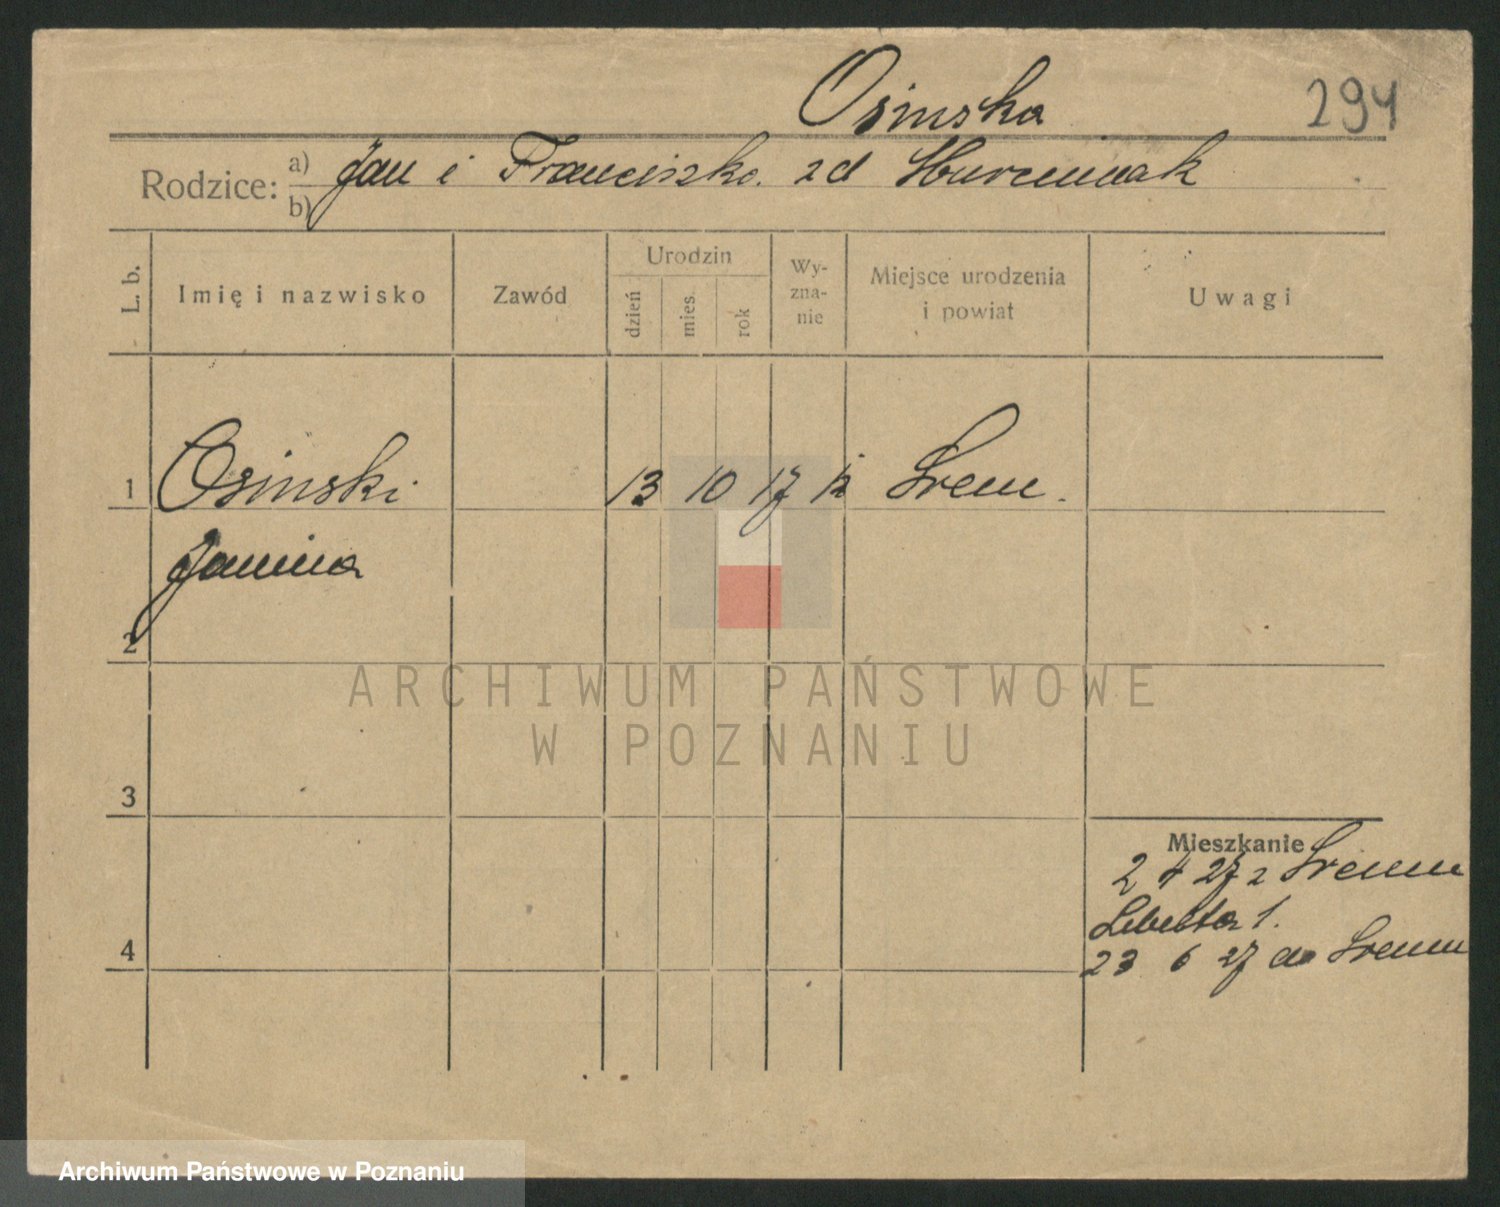 Osinska
294
Rodzice: a) Jan i Franciszka zd
b)
L. b.
Imię i nazwisko
Zawód
Urodzin
dzień
mies.
rok
Wy-
zna-
nie
Miejsce urodzenia
i powiat
Uwagi
1 Osinski 13 10 17 k Srem.
Janina
2
3
4
Mieszkanie
2 4 27 z Sremu
Libelta 1.
23 6 27 do Sremu
ARCHIWUM PAŃSTWOWE
W POZNANIU
Archiwum Państwowe w Poznaniu